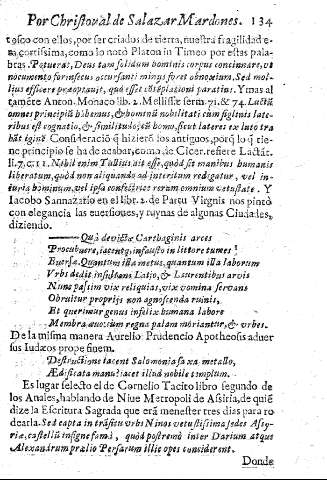 Por Christoual de Salazar Mardones. 134
tosco con ellos, por ser criados de tierra, nuestra fragilidad e
certissima, como lo notò Platon in Timeo por estas pala
bras. Deus tam solidum hominis corpus concinnare, ve
nocumento forinsecus occursanti minus foret obnoxium, Sed mol-
lius efficere præoptauit, quò esset cōtēplationi paratius. Y mas al
Anton. Monaco lib. 2. Melissæ serm. 71. & 74.
omnes principiū habemus, & hominū nobilitati cum figlinis late
ribus est cognatio, & similitudo:
hāt igine. Consideraciō q̄ hizierō los antiguos, porq̄ lo q̄ tie
ne principio se ha de acabar, como de Cicer. refiere Lactāt.
li. 7. c. 11. Nihil enim Tullius ait esse, quòd sit manibus humanis
liberatum, quòd non aliquando ad interitum redigatur, vel in-
iuria hominum, vel ipsa confectrice rerum omnium vetustate. Y
Iacobo Sannazario en el libr. 2. de Partu Virginis nos pintò
con elegancia las euersiones, y ruynas de algunas Ciudades,
diziendo.
Quà deuictæ Carthaginis arces
Procubuere, iacentq; infausto in littore turres
Quantum illa metus, quantum illa laborum
Vrbs dedit insultans Latio, & Laurentibus aruis
Nunc passim vix reliquias, vix nomina seruans
Obruitur proprijs non agnoscenda ruinis,
Et querimur genus infelix humana labore
Membra æuo, cum regna palam moriantur, & vrbes.
De la misma manera Aurelio Prudencio Apotheosis aduer
sus Iudæos prope finem.
Destructione iacent Salomonia saxa metallo,
Ædificata manu? iacet illud nobile templum.
Es lugar selecto el de Cornelio Tacito libro segundo de
los Anales, hablando de Niue Metropoli de Assiria, de quiē
dize la Escritura Sagrada que erā menester tres dias para ro
dearla. Sed capta in trāsitu vrbs Ninos vetustissima sedes Assy-
riæ, castellū insigne fama, quòd postremò inter Darium atque
Alexandrum prælio Persarum illic opes considerent.
Donde